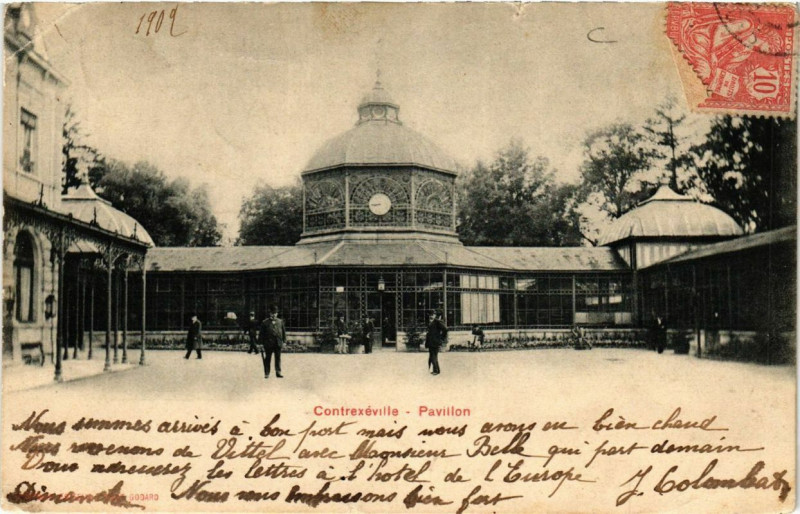 1902
POSTES
10
Contrexéville - Pavillon
Nous sommes arrivés à bon port mais nous avons eu bien chaud
Nous revenons de Vittel avec Monsieur Belle qui part demain
Vous adresserez les lettres à l'hotel de l'Europe
Dimanche Nous vous embrassons bien fort
J. Colombat
GODARD